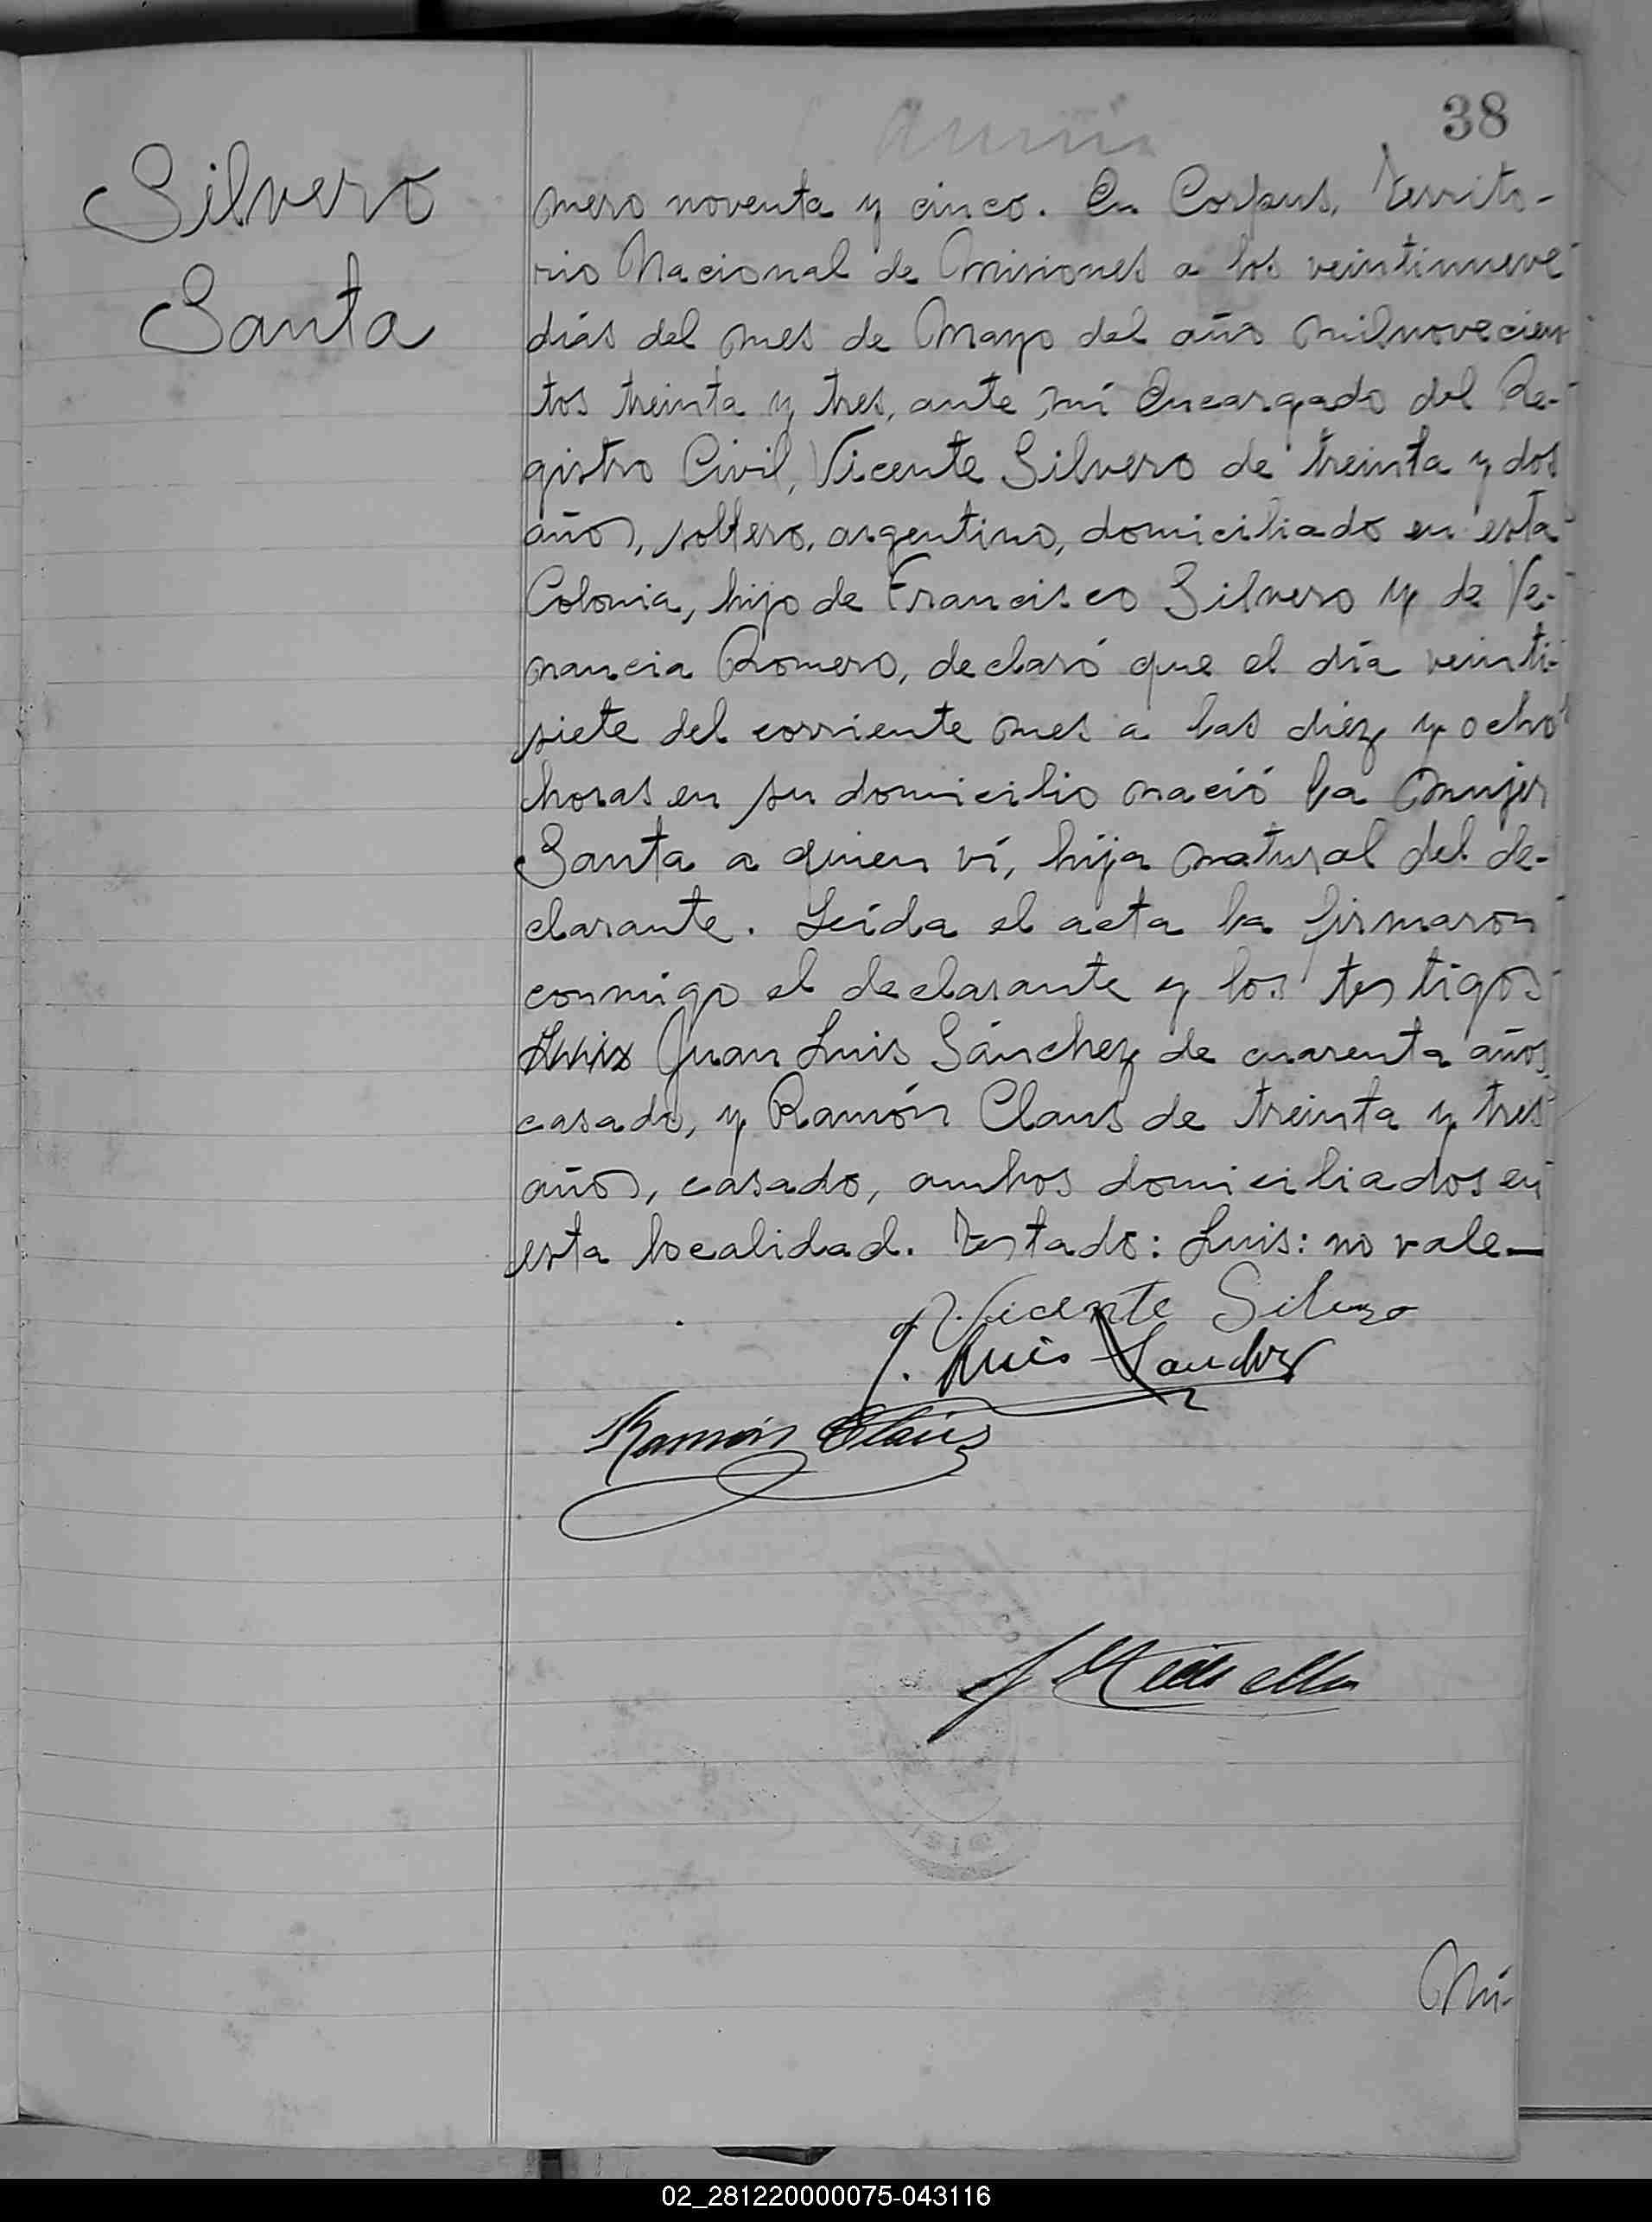 38
Silvero
Santa
mero noventa y cinco. En Corpus, Territo-
rio Nacional de Misiones a los veintinueve
días del mes de Mayo del año milnovecien
tos treinta y tres, ante mí Encargado del Re-
gistro Civil, Vicente Silvero de treinta y dos
años, soltero, argentino, domiciliado en esta
Colonia, hijo de Francisco Silvero y de Ve-
nancia Romero, declaró que el día veinti-
siete del corriente mes a las diez y ocho
horas en su domicilio nació la mujer
Santa a quien ví, hija natural del de-
clarante. Leída el acta la firmaron
conmigo el declarante y los testigos
Luis Juan Luis Sánchez de cuarenta años,
casado, y Ramón Claus de treinta y tres
años, casado, ambos domiciliados en
esta localidad. Testado: Luis: no vale—
Vicente Silvero
J. Luis Sanchez
Ramón Claus
Mú-
02_281220000075-043116